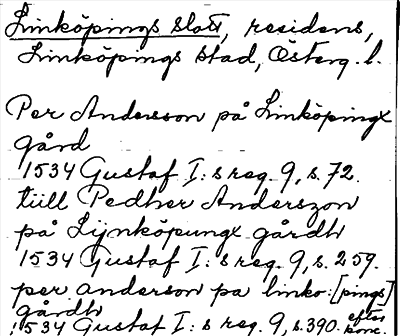 Linköpings slott, residens,
Linköpings stad, Österg. l.
Per Andersson på Linköpingx
gård
1534 Gustaf I:s reg. 9, s. 72.
tiill Pedher Anderszon
på Lijnköpungx gårdh
1534 Gustaf I:s reg. 9, s. 259.
per anderson pa linko: [pings]
gårdh
1534 Gustaf I:s reg. 9, s. 390. efter konc.